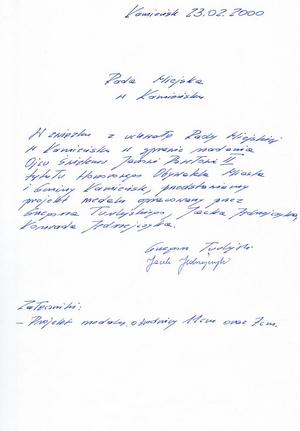 Kamieńsk 23.02.2000
Rada Miejska
w Kamieńsku
W związku z uchwałą Rady Miejskiej
w Kamieńsku w sprawie nadania
Ojcu Świętemu Janowi Pawłowi II
tytułu Honorowego Obywatela Miasta
i Gminy Kamieńsk, przedstawiamy
projekt medalu opracowany przez
Grzegorza Turlejskiego, Jacka Jędrzejczyka,
Konrada Jędrzejczyka.
Grzegorz
Jacek Jędrzejczyk
Załączniki:
– Projekt medalu o średnicy 11cm oraz 7cm.